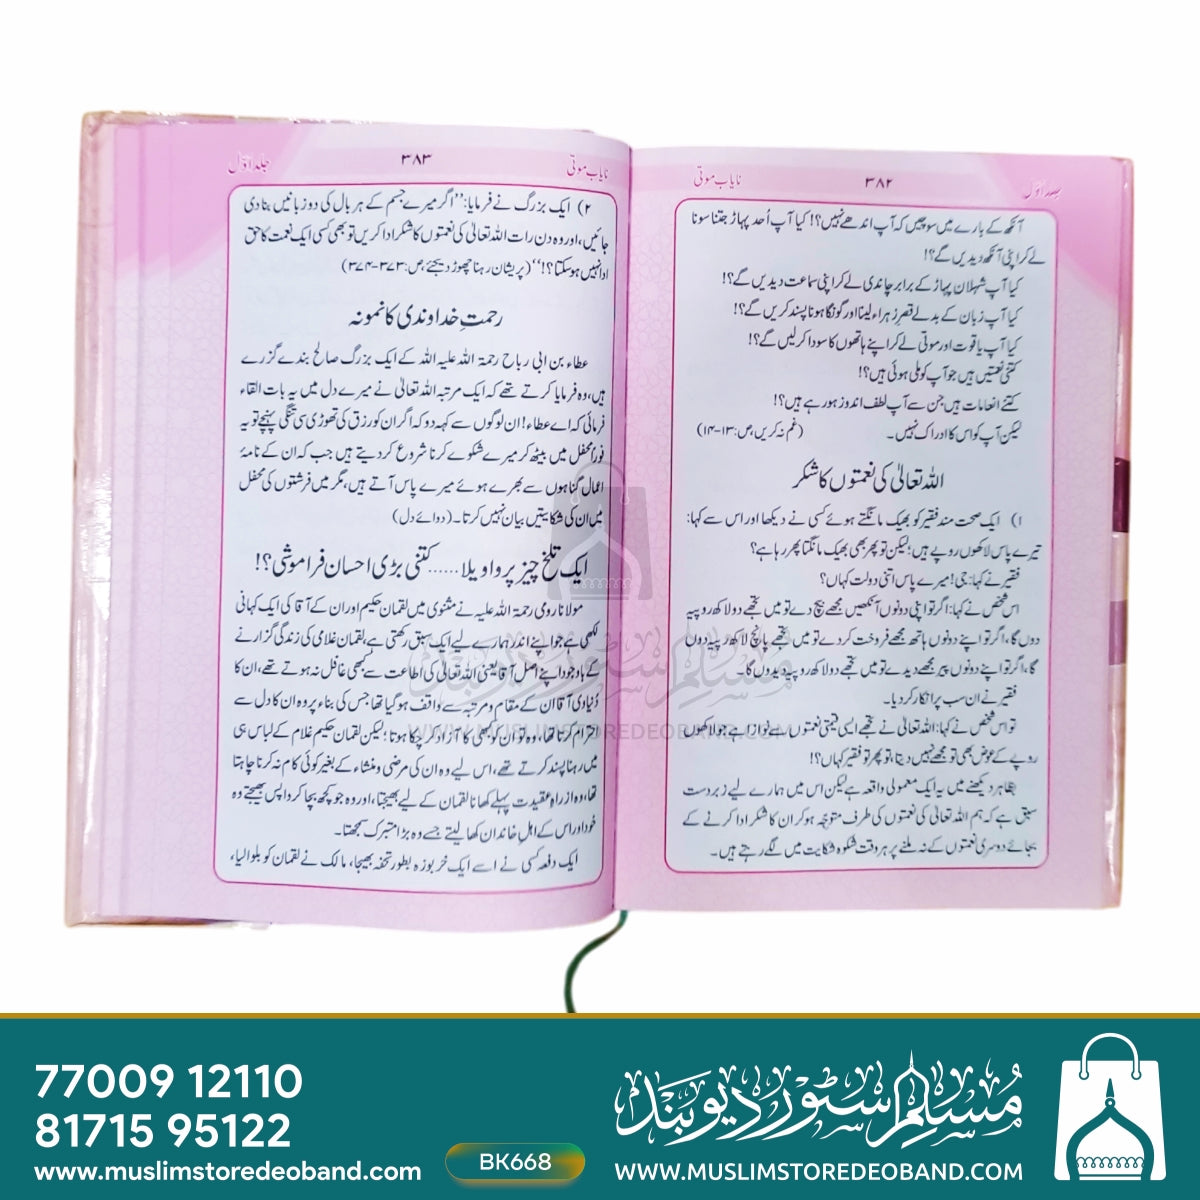 حصہ اوّل
۳۸۲
نایاب موتی
آنکھ کے بارے میں سوچیں کہ آپ اندھے نہیں؟! کیا آپ اُحد پہاڑ جتنا سونا
لے کر اپنی آنکھ دیدیں گے؟!
کیا آپ شہلان پہاڑ کے برابر چاندی لے کر اپنی سماعت دیدیں گے؟!
کیا آپ زبان کے بدلے قصرِ زہراء لینا اور گونگا ہونا پسند کریں گے؟!
کیا آپ یاقوت اور موتی لے کر اپنے ہاتھوں کا سودا کرلیں گے؟!
کتنی نعمتیں ہیں جو آپ کو ملی ہوئی ہیں؟!
کتنے انعامات ہیں جن سے آپ لطف اندوز ہورہے ہیں؟!
لیکن آپ کو اس کا ادراک نہیں۔ (غم نہ کریں، ص:۱۳-۱۴)
اللہ تعالیٰ کی نعمتوں کا شکر
۱) ایک صحت مند فقیر کو بھیک مانگتے ہوئے کسی نے دیکھا اور اس سے کہا:
تیرے پاس لاکھوں روپے ہیں؛ لیکن تو پھر بھی بھیک مانگتا پھر رہا ہے؟
فقیر نے کہا: جی! میرے پاس اتنی دولت کہاں؟
اس شخص نے کہا: اگر تو اپنی دونوں آنکھیں مجھے بیچ دے تو میں تجھے دو لاکھ روپیہ
دوں گا، اگر تو اپنے دونوں ہاتھ مجھے فروخت کردے تو میں تجھے پانچ لاکھ روپیہ دوں
گا، اگر تو اپنے دونوں پیر مجھے دیدے تو میں تجھے دو لاکھ روپیہ دیدوں گا۔
فقیر نے ان سب پر انکار کردیا۔
تو اس شخص نے کہا: اللہ تعالیٰ نے تجھے ایسی قیمتی نعمتوں سے نوازا ہے جو لاکھوں
روپے کے عوض بھی تو مجھے نہیں دیتا، تو پھر تو فقیر کہاں؟!
بظاہر دیکھنے میں یہ ایک معمولی واقعہ ہے لیکن اس میں ہمارے لیے زبردست
سبق ہے کہ ہم اللہ تعالیٰ کی نعمتوں کی طرف متوجہ ہوکر ان کا شکر ادا کرنے کے
بجائے دوسری نعمتوں کے نہ ملنے پر ہر وقت شکوہ شکایت میں لگے رہتے ہیں۔
نایاب موتی
۳۸۳
جلد اوّل
۲) ایک بزرگ نے فرمایا: ”اگر میرے جسم کے ہر بال کی دو زبانیں بنا دی
جائیں، اور وہ دن رات اللہ تعالیٰ کی نعمتوں کا شکر ادا کریں تو بھی کسی ایک نعمت کا حق
ادا نہیں ہوسکتا؟!“ (پریشان رہنا چھوڑ دیجئے، ص:۳۷۳-۳۷۴)
رحمتِ خداوندی کا نمونہ
عطاء بن ابی رباح رحمۃ اللہ علیہ اللہ کے ایک بزرگ صالح بندے گزرے
ہیں، وہ فرمایا کرتے تھے کہ ایک مرتبہ اللہ تعالیٰ نے میرے دل میں یہ بات القاء
فرمائی کہ اے عطاء! ان لوگوں سے کہہ دو کہ اگر ان کو رزق کی تھوڑی سی تنگی پہنچے تو یہ
فوراً محفل میں بیٹھ کر میرے شکوے کرنا شروع کردیتے ہیں جب کہ ان کے نامۂ
اعمال گناہوں سے بھرے ہوئے میرے پاس آتے ہیں، مگر میں فرشتوں کی محفل
میں ان کی شکایتیں بیان نہیں کرتا۔ (دوائے دل)
ایک تلخ چیز پر واویلا...... کتنی بڑی احسان فراموشی؟!
مولانا رومی رحمۃ اللہ علیہ نے مثنوی میں لقمان حکیم اور ان کے آقا کی ایک کہانی
لکھی ہے جو اپنے اندر ہمارے لیے ایک سبق رکھتی ہے، لقمان غلامی کی زندگی گزارنے
کے باوجود اپنے اصل آقا یعنی اللہ تعالیٰ کی اطاعت سے کبھی غافل نہ ہوتے تھے، ان کا
دُنیاوی آقا ان کے مقام و مرتبہ سے واقف ہوگیا تھا جس کی بناء پر وہ ان کا دل سے
احترام کرتا تھا، وہ تو ان کو کبھی کا آزاد کرچکا ہوتا؛ لیکن لقمان حکیم غلام کے لباس ہی
میں رہنا پسند کرتے تھے، اس لیے وہ ان کی مرضی و منشاء کے بغیر کوئی کام نہ کرنا چاہتا
تھا، وہ ازراہِ عقیدت پہلے کھانا لقمان کے لیے بھیجتا، اور وہ جو کچھ بچا کر واپس بھیجتے وہ
خود اور اس کے اہلِ خاندان کھا لیتے جسے وہ بڑا متبرک سمجھتا۔
ایک دفعہ کسی نے اسے ایک خربوزہ بطورِ تحفہ بھیجا، مالک نے لقمان کو بلوا لیا،
مسلم سٹور دیوبند
WWW.MUSLIMSTOREDEOBAND.COM
77009 12110
81715 95122
www.muslimstoredeoband.com
BK668
مسلم سٹور دیوبند
WWW.MUSLIMSTOREDEOBAND.COM